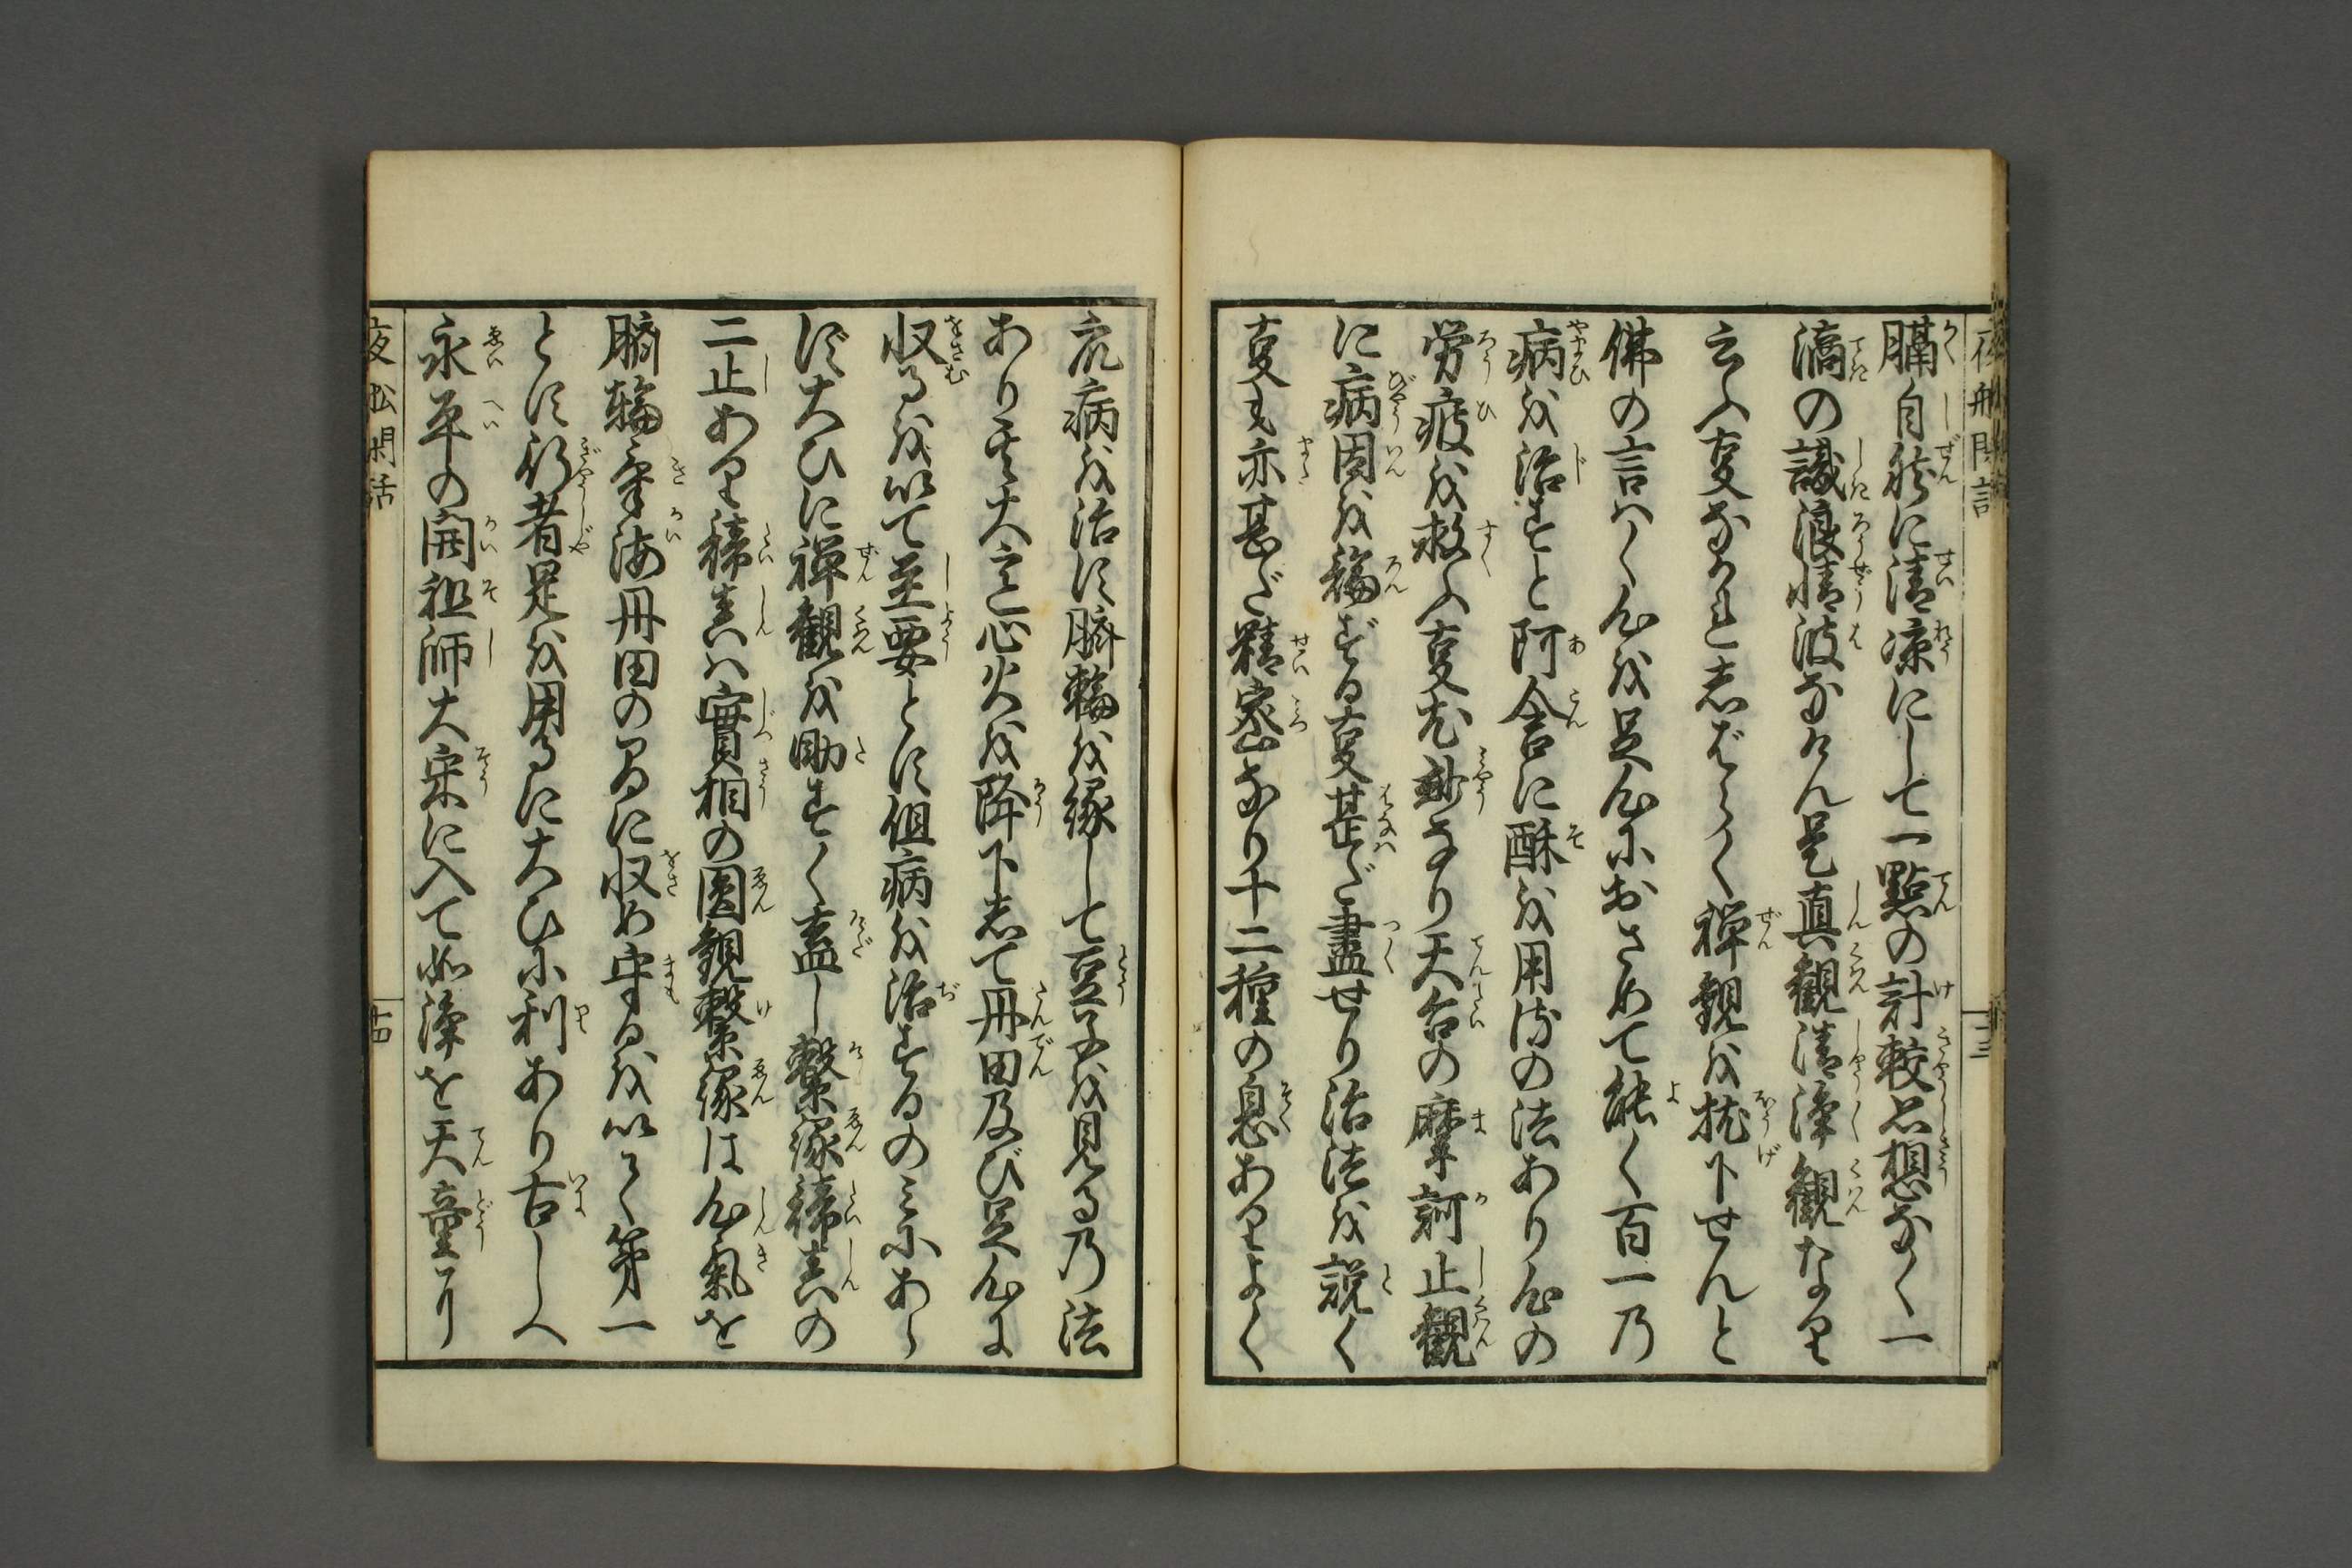 夜船閑話
十三
膈自然に清凉にして一點の計較思想なく一
滴の識浪情波なけん是真觀清淨觀なり
云ふ事なかれしばらく禅觀を抛下せんと
佛の言はく心を足心におさめて能く百一乃
病を治すと阿含に酥を用るの法あり心の
労疲を救ふ事尤妙なり天台の摩訶止觀
に病因を論ずる事甚だ盡せり治法を説く
事も亦甚だ精密なり十二種の息ありよく
衆病を治す臍輪を縁して豆子を見る乃法
あり其大意心火を降下して丹田及び足心に
収るを以て至要とす但病を治するのみにあら
ず大ひに禅觀を助すく蓋し繋縁諦真の
二止あり諦真は實相の圓觀繋縁は心氣を
臍輪氣海丹田の間に収め守るを以て第一
とす行者是を用るに大ひに利あり古しへ
永平の開祖師大宋に入て如淨を天童に
夜船閑話
十四